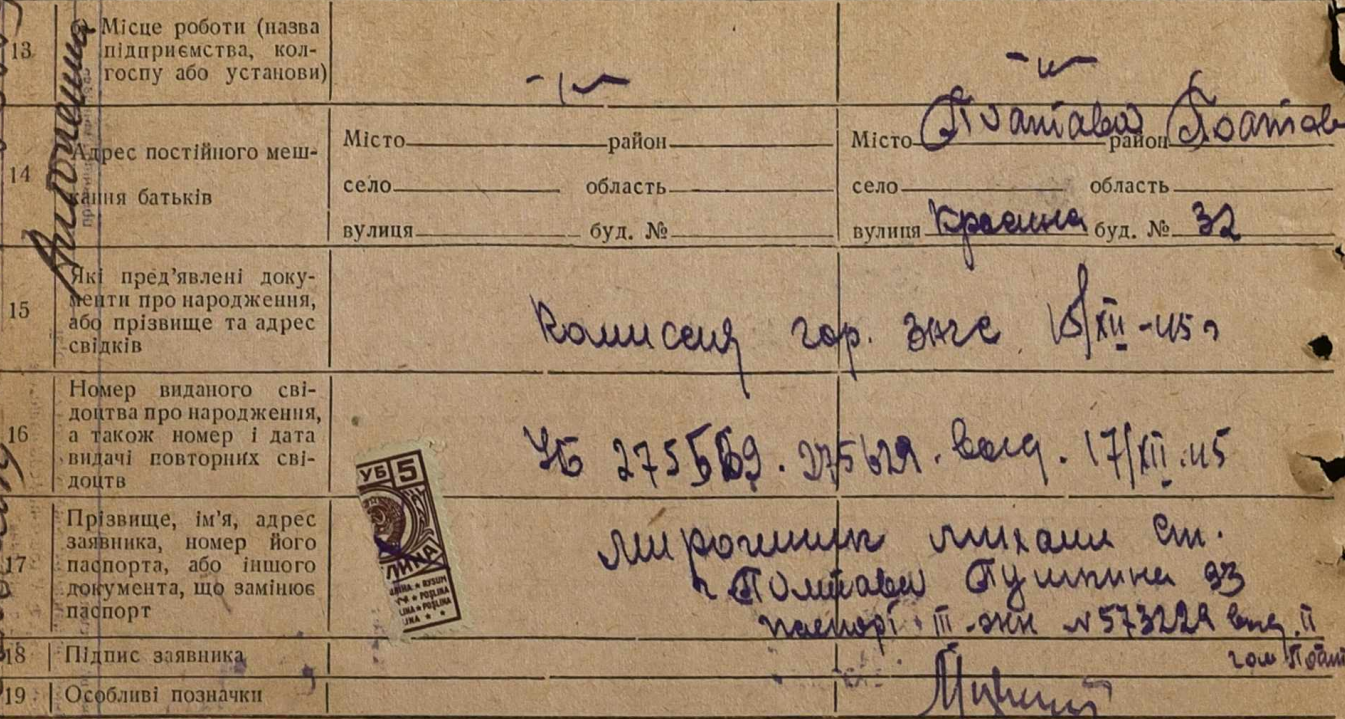 13 Місце роботи (назва
підприємства, кол-
госпу або установи)
14 Адрес постійного меш-
кання батьків
Місто район
село область
вулиця буд. №
Місто Полтава район Полтав
село область
вулиця буд. № 32
15 Які пред’явлені доку-
менти про народження,
або прізвище та адрес
свідків
Комиссия гор. загс 15/XII-45 г
16 Номер виданого сві-
доцтва про народження,
а також номер і дата
видачі повторних сві-
доцтв
УБ выд. 17/XII.45
УБ 5
17 Прізвище, ім’я, адрес
заявника, номер його
паспорта, або іншого
документа, що замінює
паспорт
Мирошник Михаил Ст.
г Полтава Пушкина 93
паспорт III № 573229 выд. II
18 Підпис заявника
19 Особливі позначки